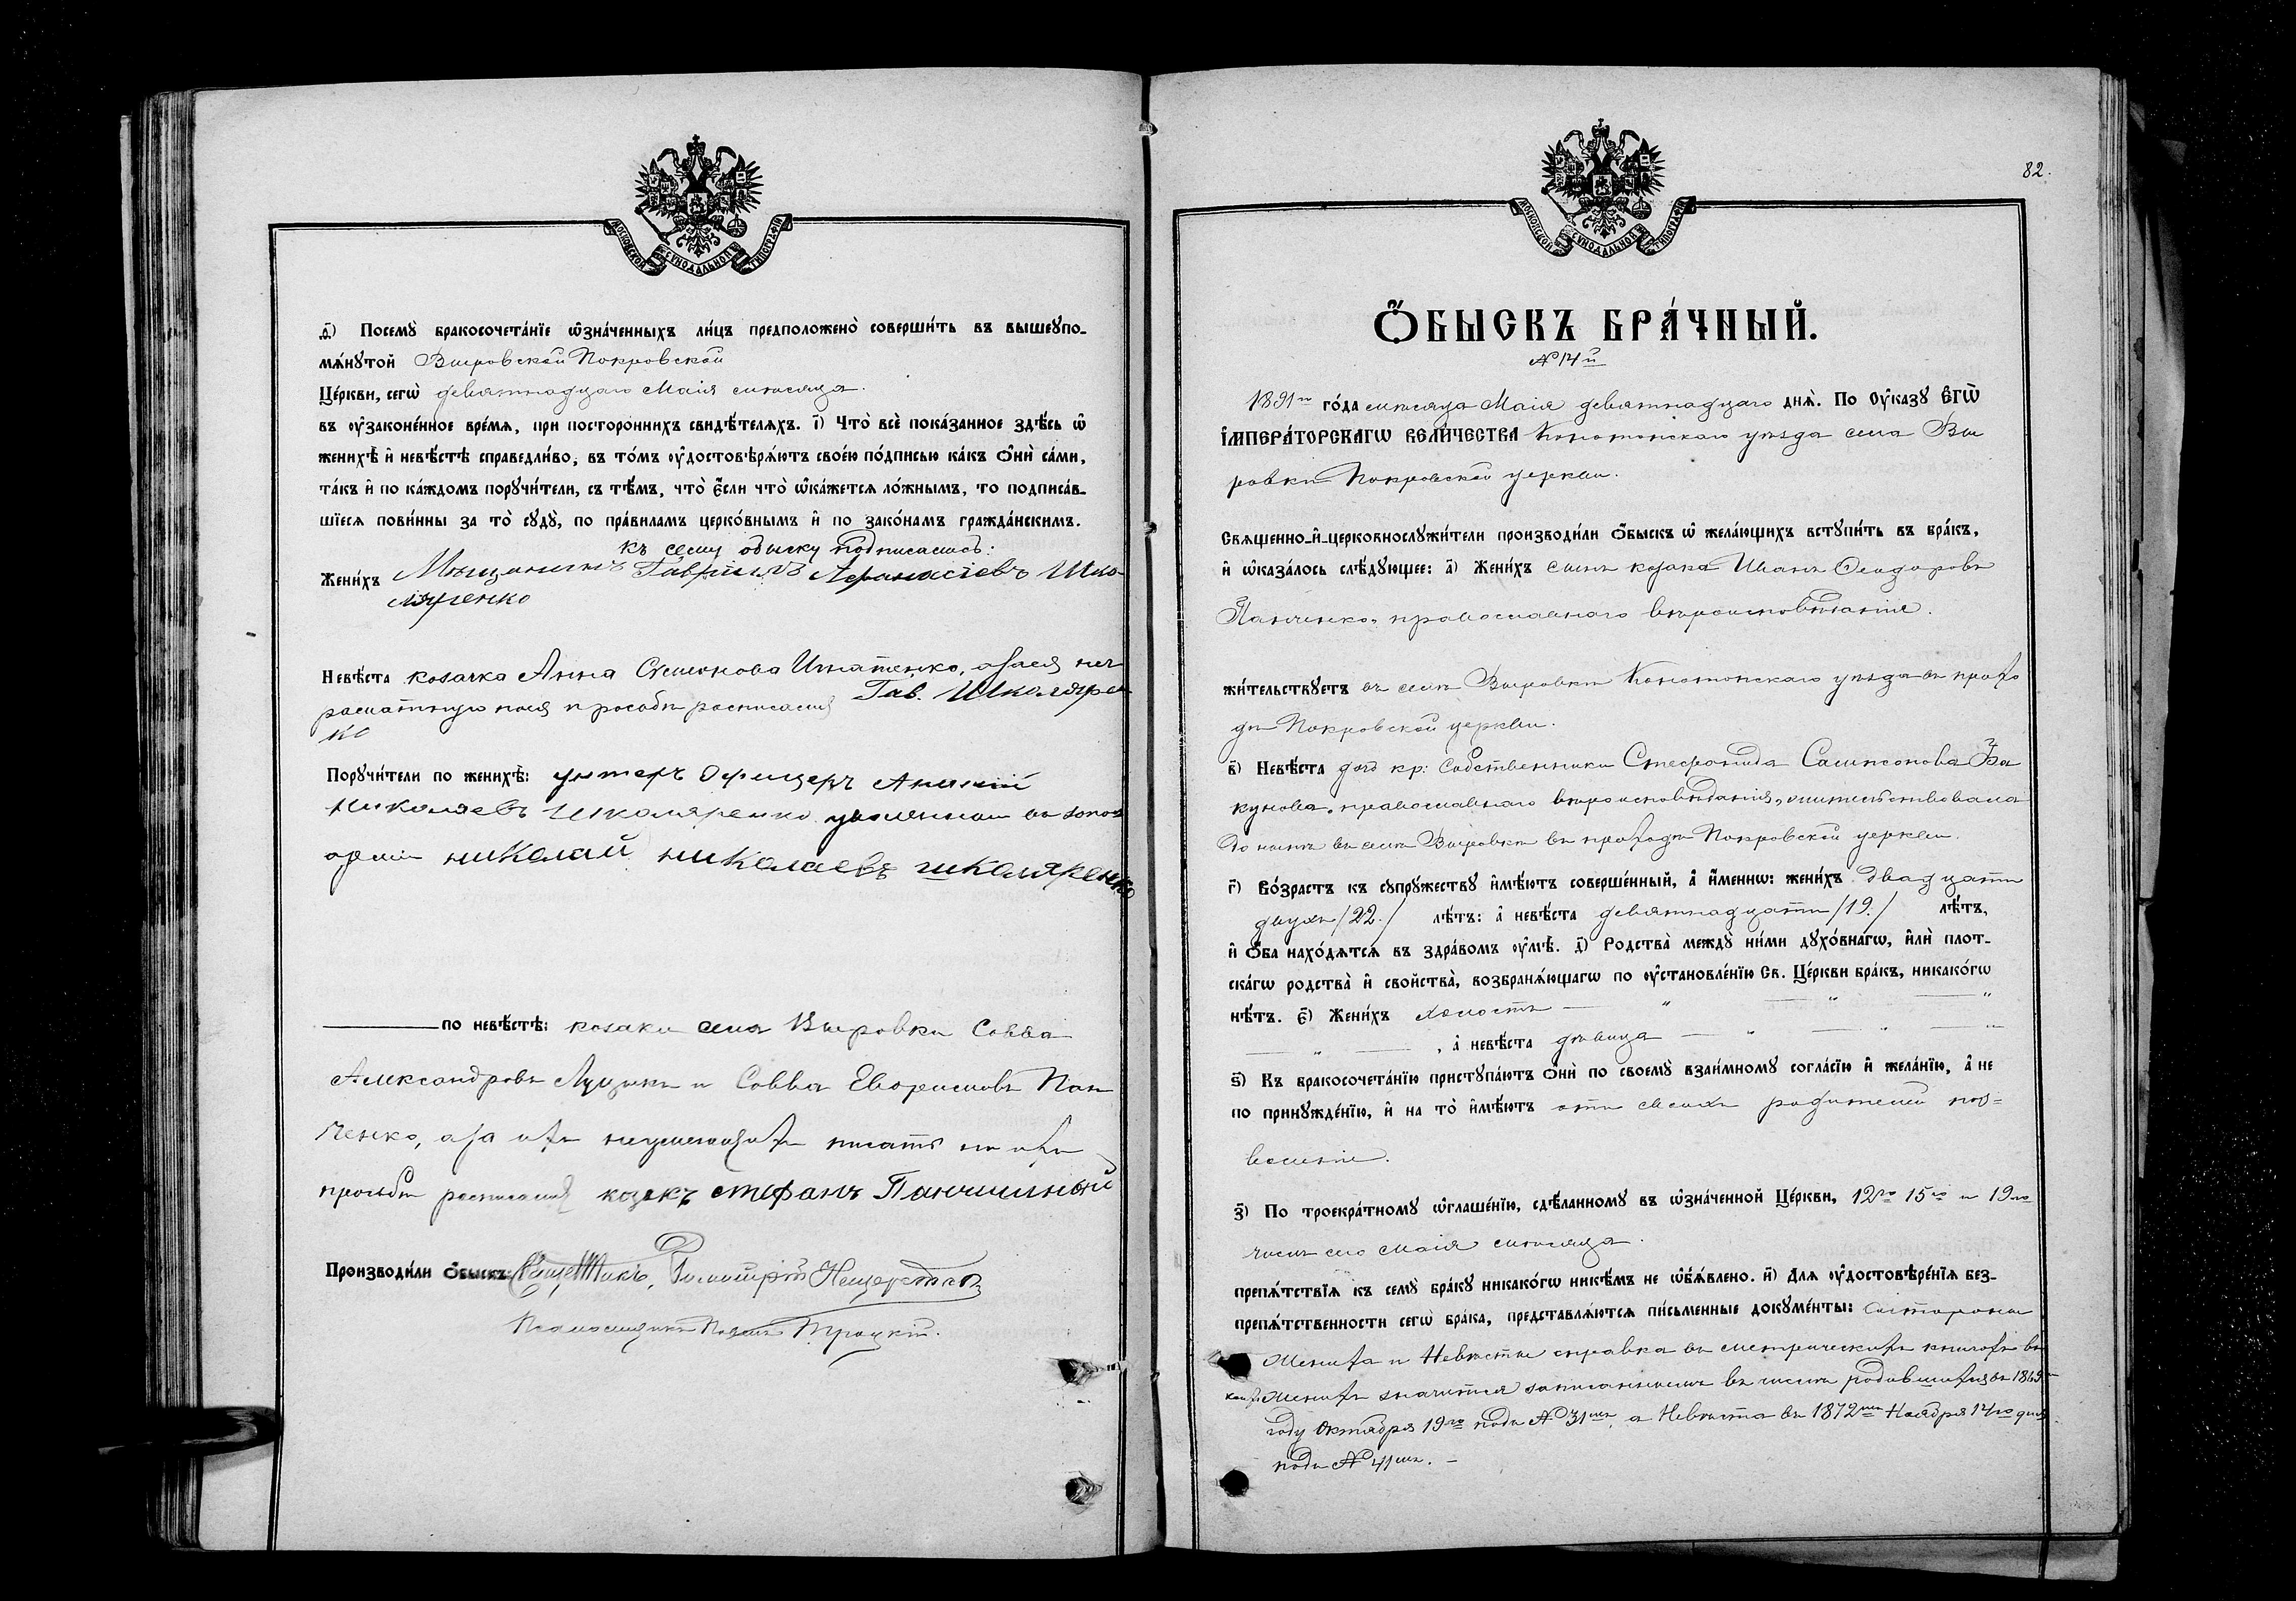 МОСКОВСКОЙ СѴНОДАЛЬНОЙ ТИПОГРАФІИ
ѳ҃) Посемꙋ̀ бракосочета́нїе ѡ҆зна́ченныхъ ли́цъ предположено̀ соверши́ть въ вышеꙋпо-
мѧ́нꙋтой Вировской Покровской
Це́ркви, сегѡ̀ девятнадцаго Маія мѣсяца.
въ ᲂу҆зако́ненное вре́мѧ, при посторо́ннихъ свидѣ́телѧхъ. і҃) Что̀ всѐ пока́занное здѣ́сь ѡ҆
женихѣ̀ и҆ невѣ́стѣ справедли́во, въ то́мъ ᲂу҆достовѣрѧ́ютъ свое́ю по́дписью ка́къ ѻ҆нѝ са́ми,
та́къ и҆ по ка́ждомъ порꙋчи́тели, съ тѣ́мъ, что̀ є҆́сли что̀ ѡ҆ка́жетсѧ ло́жнымъ, то подписа́в-
шїесѧ пови́нны за то̀ сꙋдꙋ̀, по пра́виламъ церко́внымъ и҆ по зако́намъ гражда́нскимъ.
къ сему обыску подписались:
Жени́хъ Мѣщанинъ Гавріилъ Аѳанасіевъ Шко-
ляренко
Невѣ́ста козачка Анна Семонова Игнатенко, а за нея не
грамотную по ея просьбѣ росписался Гав. Школярен
ко
Порꙋчи́тели по женихѣ̀: унтеръ Офицеръ
Николаевъ Школяренко уволенный въ запас
арміи николай николаевъ школяренко
по невѣ́стѣ: козаки села Вировки Савва
Александровъ Луцикъ и Савва Пан
ченко, а за ихъ неумеющихъ писать по ихъ
просьбѣ росписался козакъ стефанъ Панчишный
Производи́ли ѻ҆́быскъ:
Псаломщикъ Троцкій.
82.
МОСКОВСКОЙ СѴНОДАЛЬНОЙ ТИПОГРАФІИ
Ѻ҆́БЫСКЪ БРА́ЧНЫЙ.
№ 14й
1891го го́да мѣсяца Маія девятнадцаго днѧ̀. По Оу҆ка́зꙋ Є҆ГѠ̀
І҆МПЕРА́ТОРСКАГѠ ВЕЛИ́ЧЕСТВА Конотопскаго уѣзда села Ви
ровки Покровской церкви.
Свѧщенно-и҆-церковнослꙋжи́тели производи́ли ѻ҆́быскъ ѡ҆ жела́ющихъ встꙋпи́ть въ бра́къ,
и҆ ѡ҆каза́лось слѣ́дꙋющее: а҃) Жени́хъ сынъ козака Иванъ Ѳеодоровъ
Панченко, православнаго вѣроисповѣданія.
жи́тельствꙋетъ въ селѣ Вировкѣ Конотопскаго уѣзда въ прихо
дѣ Покровской церкви.
в҃) Невѣ́ста дочь кр: собственника Стефанида Сампсонова Ва
кунова, православнаго вѣроисповѣданія, жительствовала
до нынѣ въ селѣ Вировкѣ въ приходѣ Покровской церкви.
г҃) Во́зрастъ къ сꙋпрꙋ́жествꙋ и҆мѣ́ютъ соверше́нный, а҆ и҆́меннѡ: жени́хъ двадцати
двухъ /22./ лѣ́тъ: а҆ невѣ́ста девятнадцати /19./ лѣ́тъ,
и҆ ѻ҆́ба нахо́дѧтсѧ въ здра́вомъ ᲂу҆мѣ̀. д҃) Родства̀ междꙋ̀ ни́ми дꙋхо́внагѡ, и҆лѝ плот-
ска́гѡ родства̀ и҆ свойства̀, возбранѧ́ющагѡ по ᲂу҆становле́нїю Св. Це́ркви бра́къ, никако́гѡ
нѣ́тъ. є҃) Жени́хъ холостъ — „ — „ — „
— „ — , а҆ невѣ́ста дѣвица — „ — „ — „
ѕ҃) Къ бракосочета́нїю пристꙋпа́ютъ ѻ҆нѝ по своемꙋ̀ взаи́мномꙋ согла́сїю и҆ жела́нїю, а҆ не
по принꙋжде́нїю, и҆ на то̀ и҆мѣ́ютъ отъ своихъ родителей поз=
воленіе.
з҃) По троекра́тномꙋ ѡ҆глаше́нїю, сдѣ́ланномꙋ въ ѡ҆зна́ченной Це́ркви, 12го 15го и 19го
чиселъ сего Маія мѣсяца.
препѧ́тствїѧ къ семꙋ̀ бра́кꙋ никако́гѡ никѣ́мъ не ѡ҆б̾ѧ́влено. и҃) Длѧ ᲂу҆достовѣре́нїѧ без-
препѧ́тственности сегѡ̀ бра́ка, представлѧ́ютсѧ пи́сьменные докꙋме́нты: Со стороны
Жениха и Невѣсты справка въ метрическихъ книгахъ въ
коихъ Женихъ значится записаннымъ въ числѣ родившихся въ 1869
году Октября 19го подъ № 31мъ, а Невѣста въ 1872мъ Ноября 14го дня
подъ № 41мъ. —